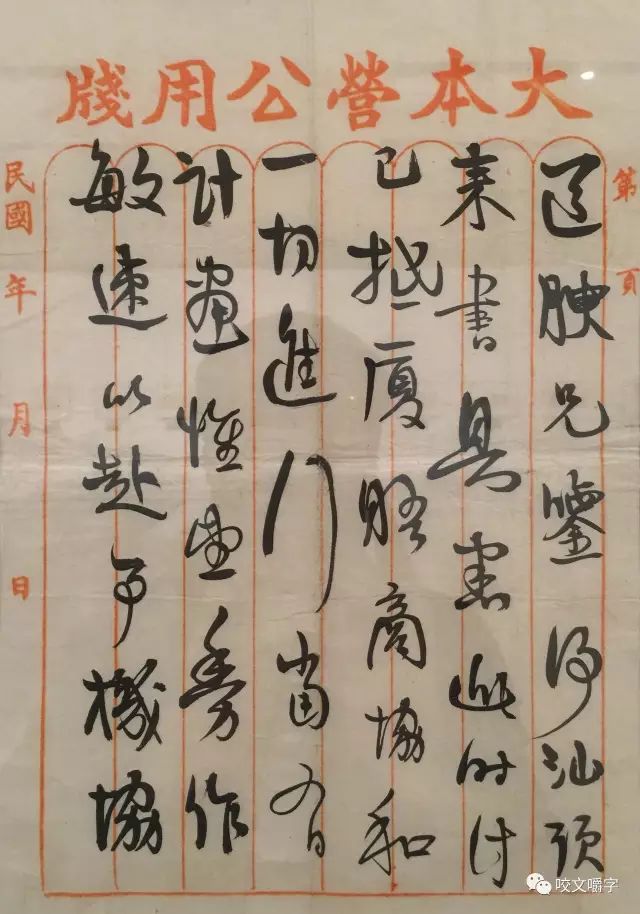 大本營公用牋
第 頁
道腴兄鑒得汕頭
来書具悉此时计
已抵厦晤商協和
一切進行當有
計畫惟望務作
敏速以赴事機協
民國 年 月 日
咬文嚼字